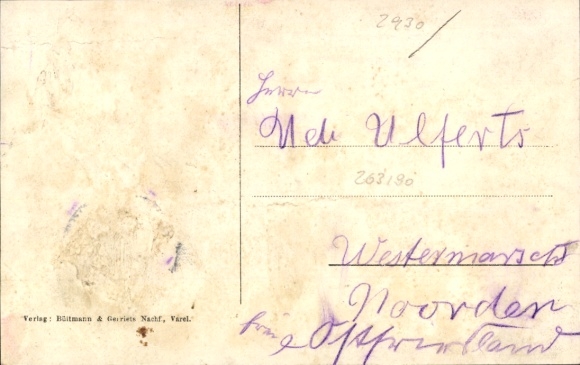 2930
Herrn
Udo Ulferts
263190
Westermarsch
Noorden
Ostfriesland
Verlag: Bültmann & Gerriets Nachf., Varel.